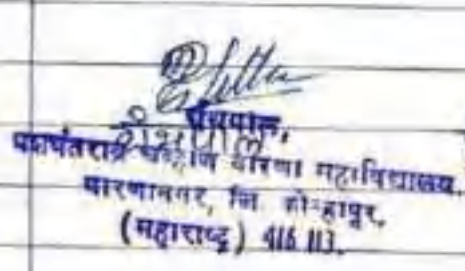 ग्रंथपाल,
ग्रंथपाल
यशवंतराव चव्हाण वारणा महाविद्यालय.
वारणानगर, जि. कोल्हापूर,
(महाराष्ट्र) 416 113.